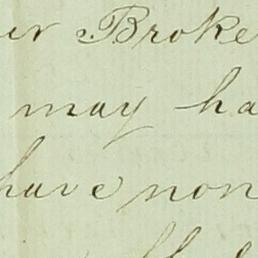 er Broke
may ha
have non